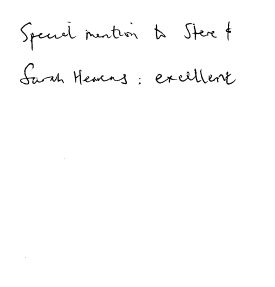 Special mention to Steve &
Sarah : excellent